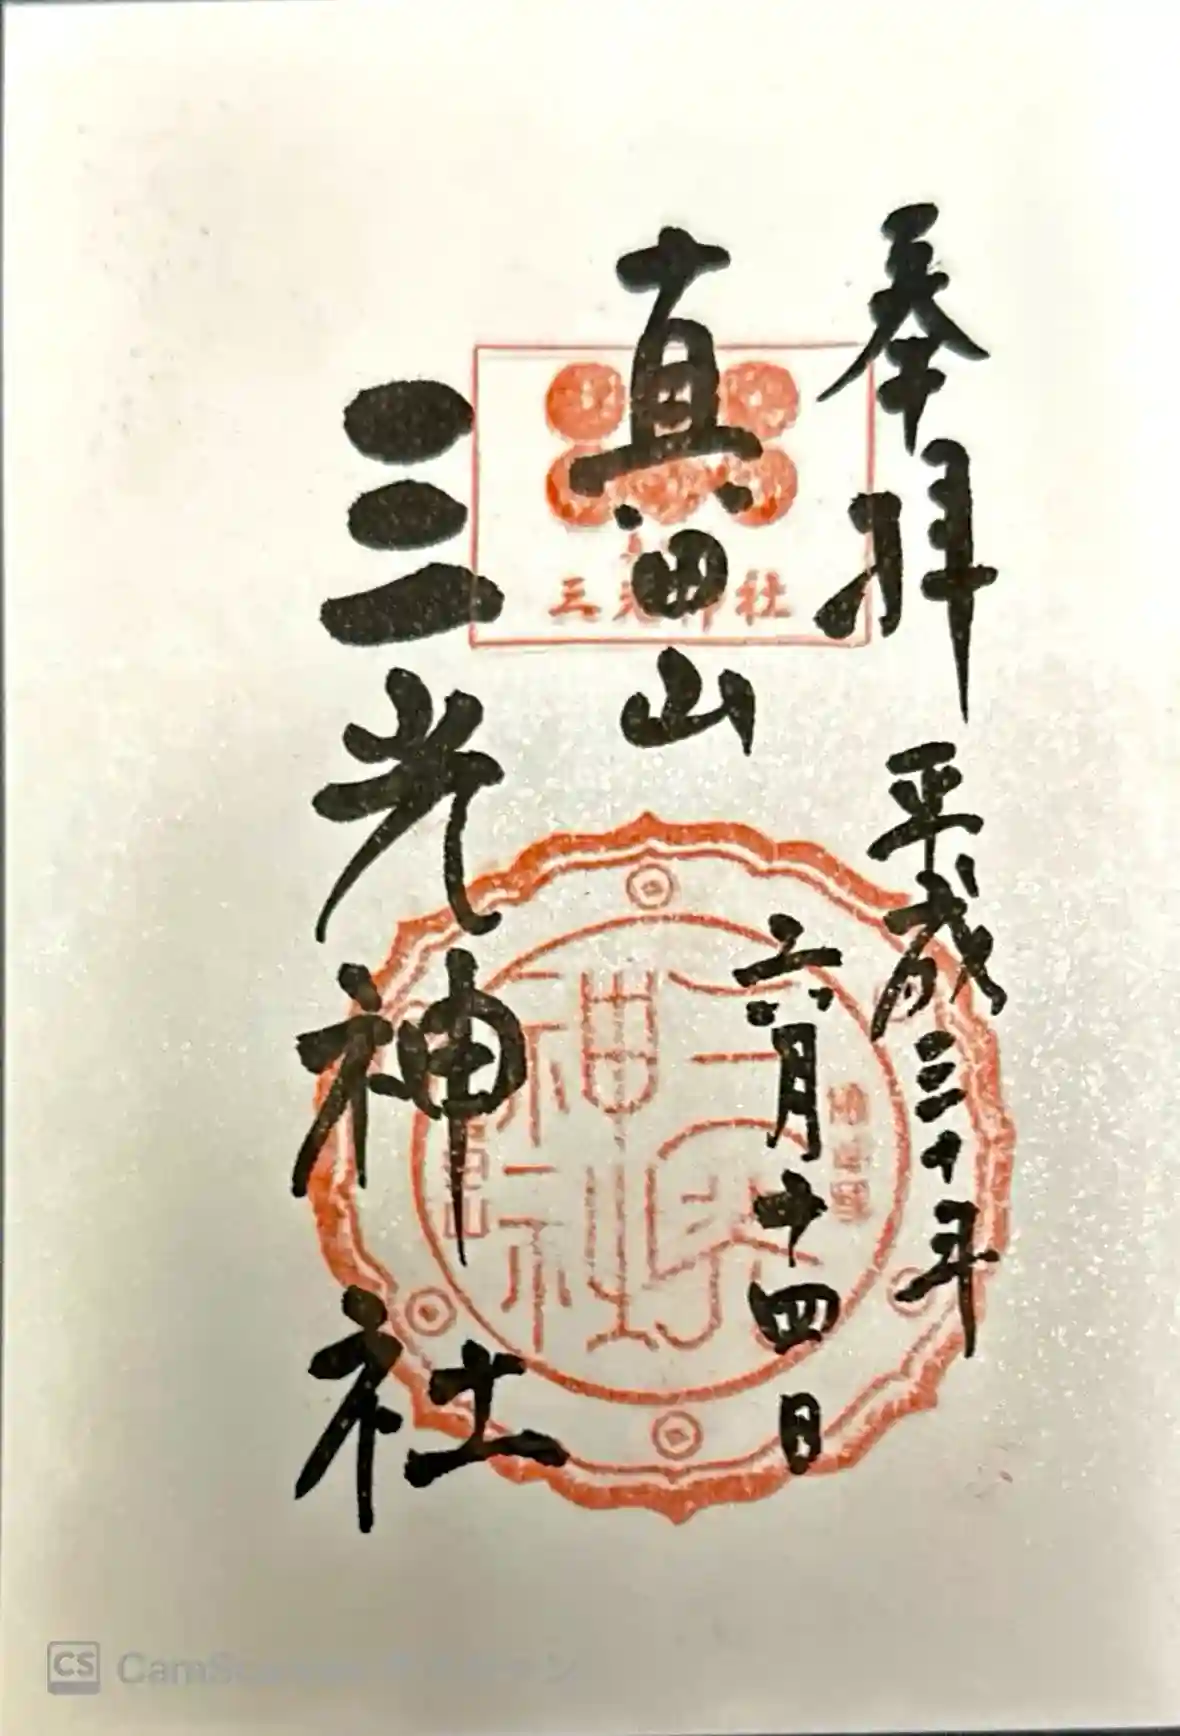 奉拝 平成三十年
六月十四日
真田山
三光神社
三光神社
三光神社
CS CamScanner